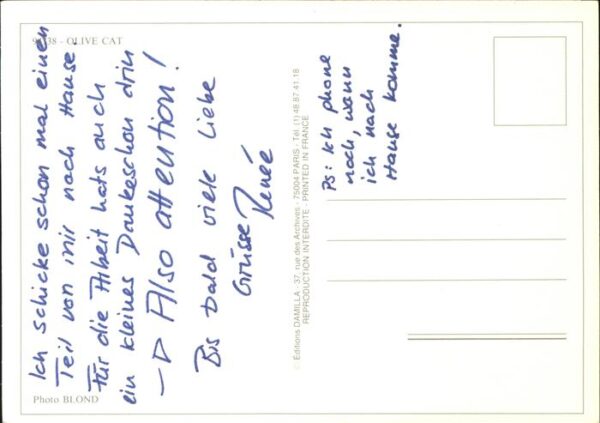 9?38 - OLIVE CAT
Ich schicke schon mal einen
Teil von mir nach Hause.
Für die Arbeit hats auch
ein kleines Dankeschön drin
→ Also attention!
Bis bald viele liebe
Grüsse Renée
Photo BLOND
© Éditions DAMILLA - 37, rue des Archives - 75004 PARIS - Tél. (1) 48.87.41.18
REPRODUCTION INTERDITE - PRINTED IN FRANCE
PS: Ich phone
noch, wann
ich nach
Hause komme.